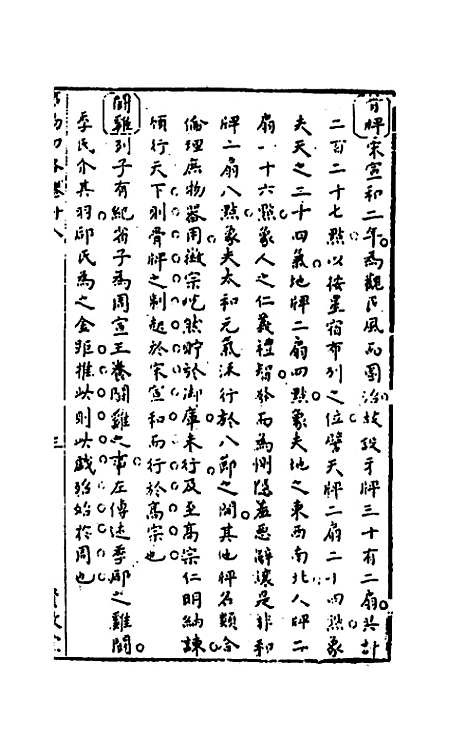 骨牌宋宣和二年為觀民風而圖治故設牙牌三十有二扇共計
二百二十七點以按星宿布列之位譬天牌二扇二十四點象
夫天之二十四氣地牌二扇四點象夫地之東西南北人牌二
扇一十六點象人之仁義禮智發而為惻隱羞惡辭讓是非和
牌二扇八點象夫太和元氣流行於八節之間其他牌名類合
倫理庶物器用徽宗恍然貯於御庫未行及至高宗仁明納諫
頒行天下則骨牌之制起於宋宣和而行於高宗也
鬪雞列子有紀渻子為周宣王養鬪雞之事左傳述季郈之雞鬪
季氏介其羽郈氏為之金距推此則此戲殆始於周也
卷十八
三